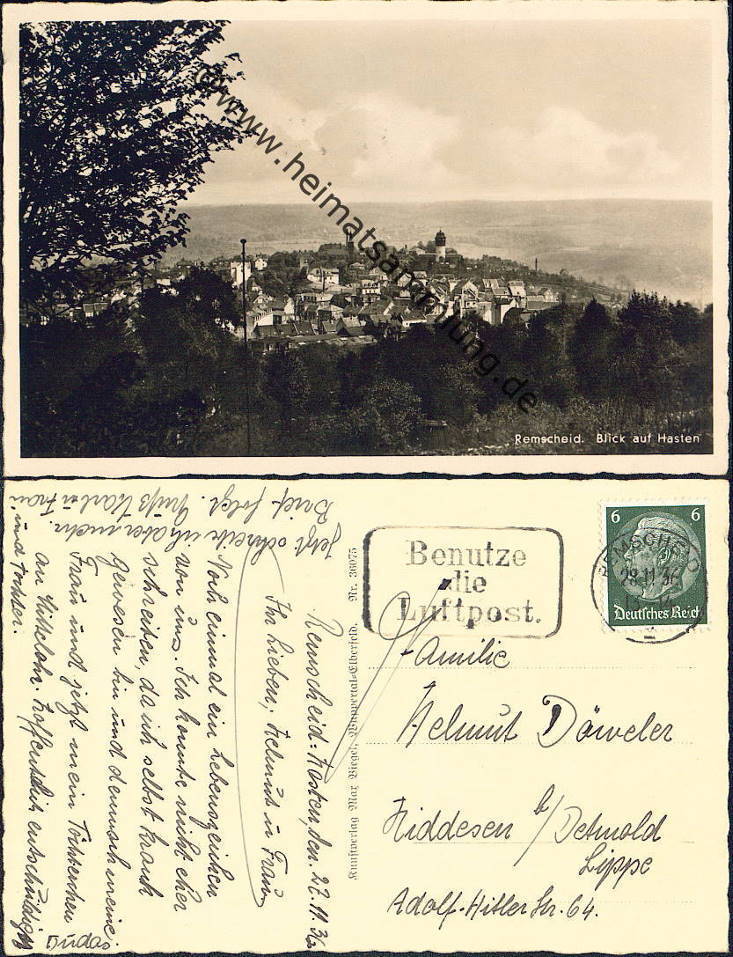 www.heimatsammlung.de
Remscheid. Blick auf Hasten
6 6
Deutsches Reich
REMSCHEID
29.11.36
Benutze
die
Luftpost.
Familie
Helmut Däweler
Hiddesen b/Detmold
Lippe
Adolf-Hitler Str. 64.
Kunstverlag Max Biegel, Wuppertal-Elberfeld. Nr. 36075
Remscheid-Hasten, den 27.11.36
Ihr Lieben, Helmut u Frau
Noch einmal ein Lebenszeichen
von uns. Ich konnte nicht eher
schreiben, da ich selbst krank
gewesen bin und dennoch meine
Frau und jetzt mein Töchterchen
an Hoffentlich entschuldigt
Jetzt schreibe ich aber mehr.
Brief folgt. Gruß Karl u Frau
und Tochter.